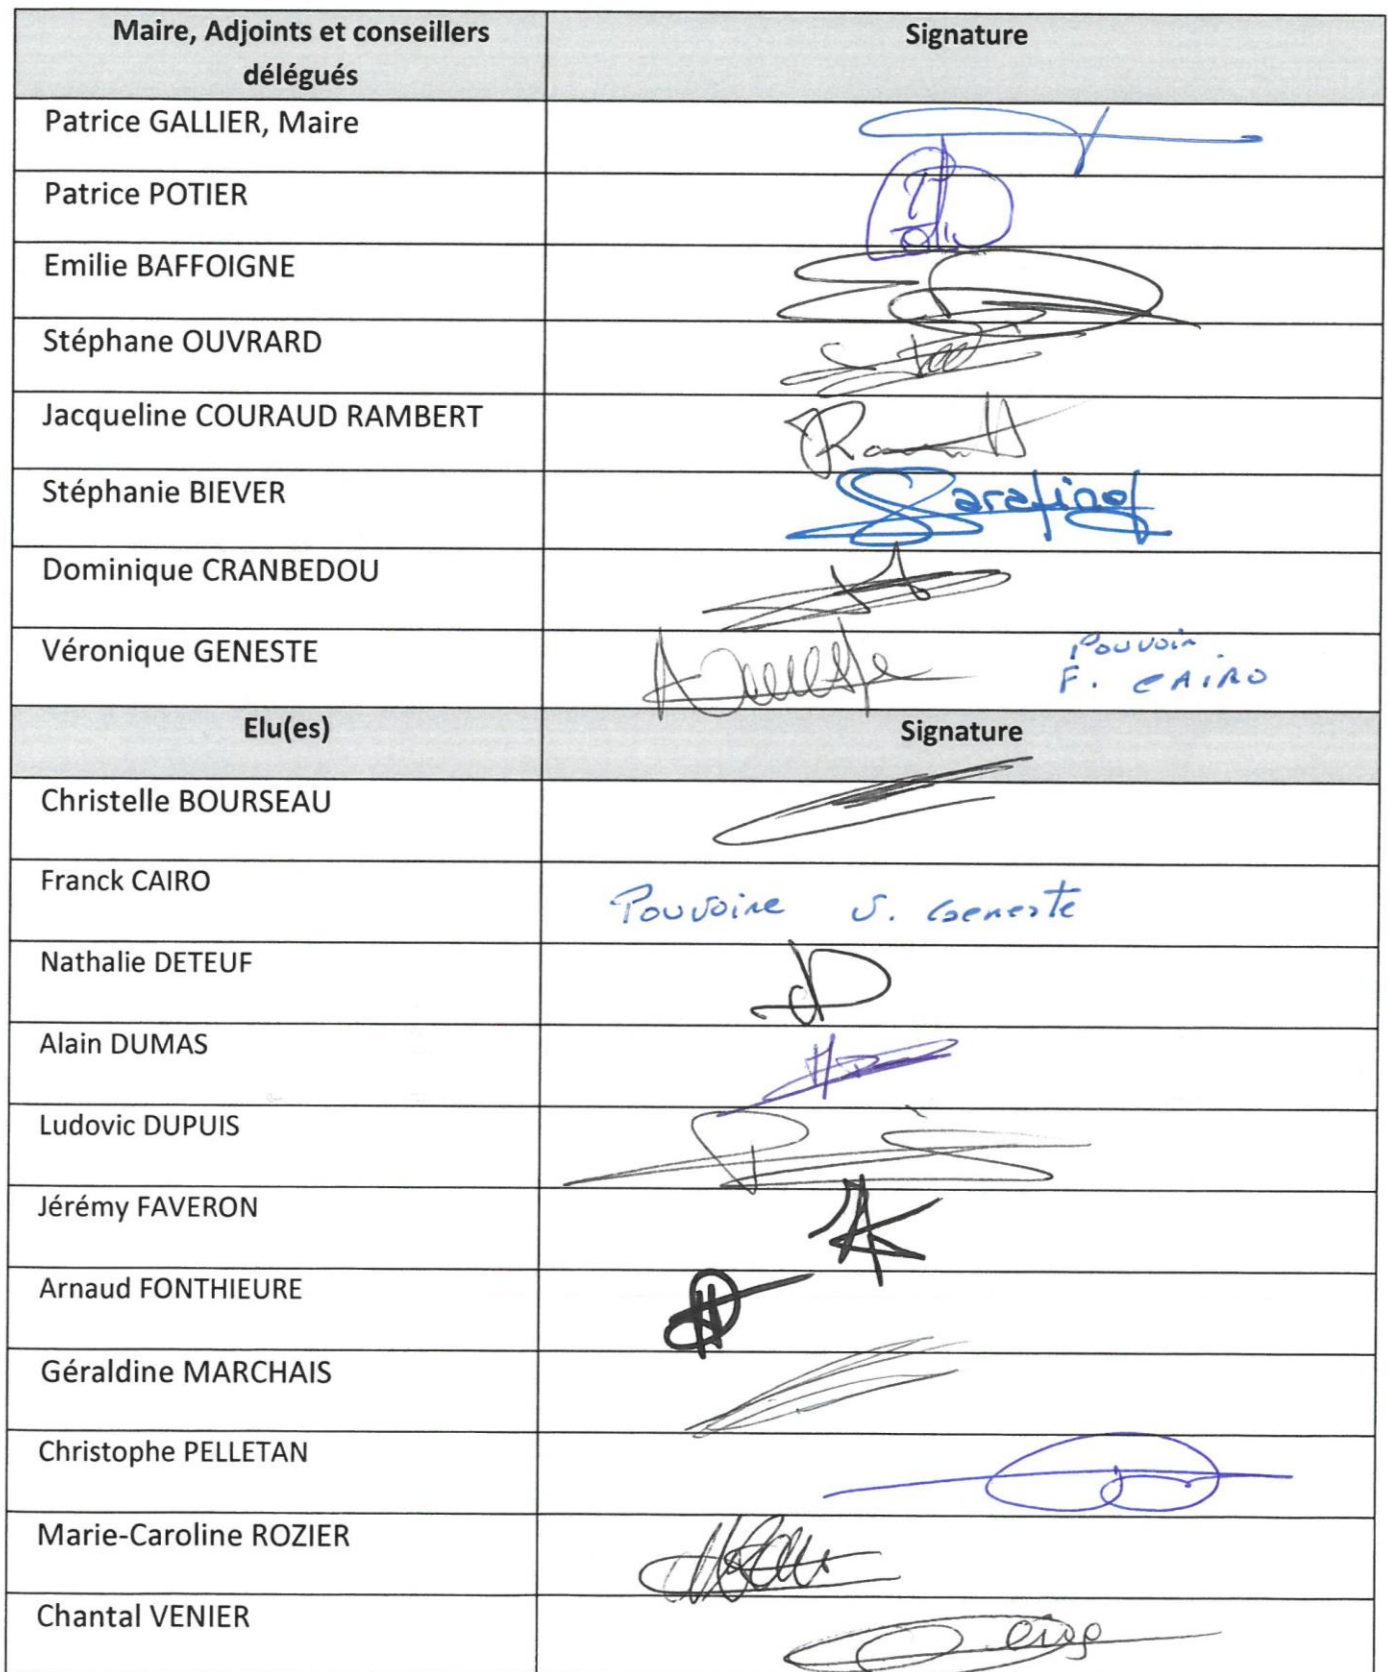 Maire, Adjoints et conseillers
délégués
Signature
Patrice GALLIER, Maire
Patrice POTIER
Emilie BAFFOIGNE
Stéphane OUVRARD
Jacqueline COURAUD RAMBERT
Stéphanie BIEVER
Dominique CRANBEDOU
Véronique GENESTE
Pouvoir
F. CAIRO
Elu(es)
Signature
Christelle BOURSEAU
Franck CAIRO
Pouvoire V. Geneste
Nathalie DETEUF
Alain DUMAS
Ludovic DUPUIS
Jérémy FAVERON
Arnaud FONTHIEURE
Géraldine MARCHAIS
Christophe PELLETAN
Marie-Caroline ROZIER
Chantal VENIER